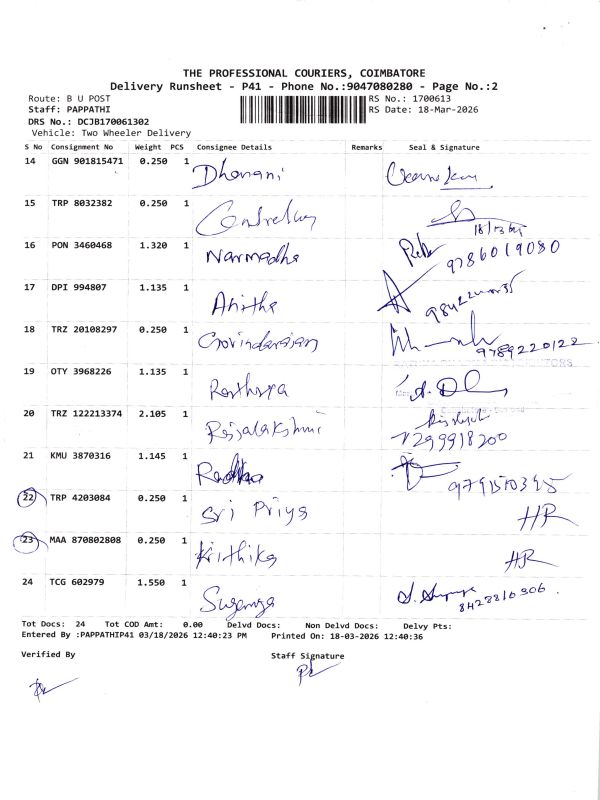 THE PROFESSIONAL COURIERS, COIMBATORE
Delivery Runsheet - P41 - Phone No.:9047080280 - Page No.:2
Route: B U POST RS No.: 1700613
Staff: PAPPATHI RS Date: 18-Mar-2026
DRS No.: DCJB170061302
Vehicle: Two Wheeler Delivery
S No Consignment No Weight PCS Consignee Details Remarks Seal & Signature
14 GGN 901815471 0.250 1 Dharani
15 TRP 8032382 0.250 1
16 PON 3460468 1.320 1 Narmadha 9786019080
17 DPI 994807 1.135 1 Anitha
18 TRZ 20108297 0.250 1 Govindarajan 9789220122
19 OTY 3968226 1.135 1
20 TRZ 122213374 2.105 1 Rajalakshmi 7299918200
21 KMU 3870316 1.145 1 Radha
22 TRP 4203084 0.250 1 Sri Priya HR
23 MAA 870802808 0.250 1 Krithika HR
24 TCG 602979 1.550 1
Tot Docs: 24 Tot COD Amt: 0.00 Delvd Docs: Non Delvd Docs: Delvy Pts:
Entered By :PAPPATHIP41 03/18/2026 12:40:23 PM Printed On: 18-03-2026 12:40:36
Verified By Staff Signature